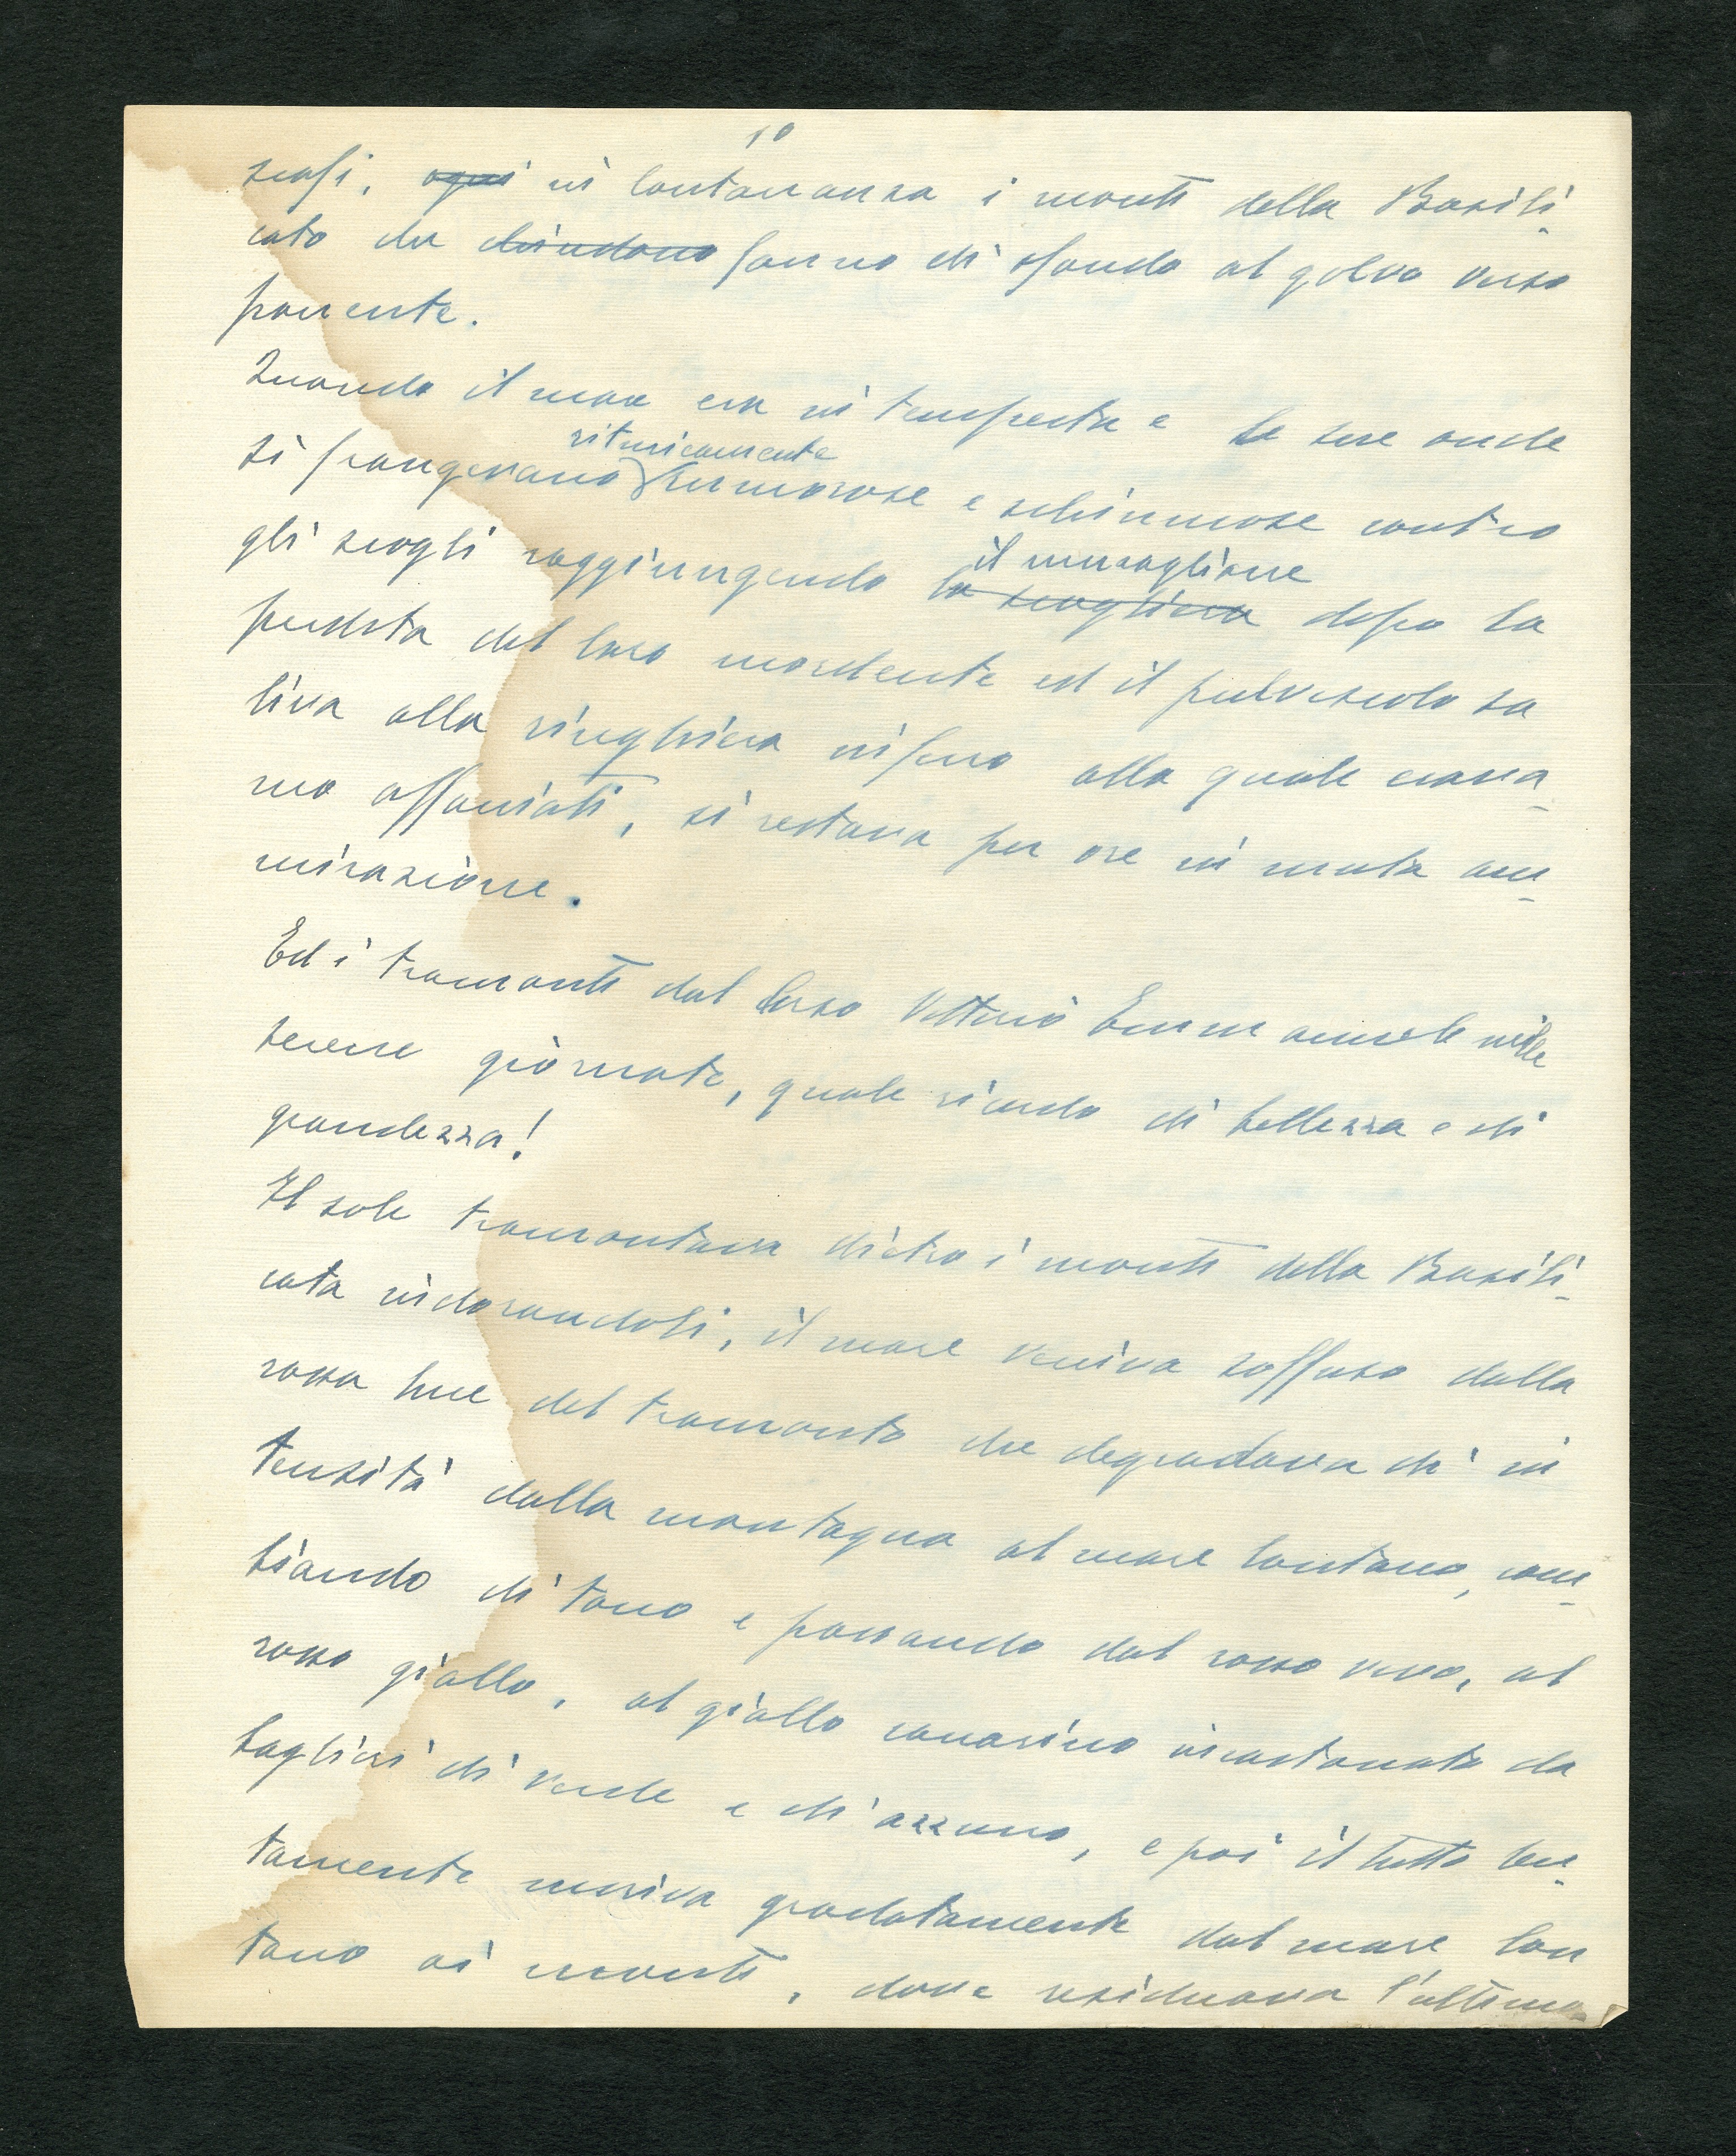 10
scafi, ogni in lontananza i monti della Basili
cata che chiudono fanno di sfondo al golfo verso
ponente.
Quando il mare era in tempesta e le sue onde
ritmicamente
si frangevano rumorose e schiumose contro
il muraglione
gli scogli raggiungendo la scogliera dopo la
perdita del loro mordente ed il pulviscolo sa
liva alla ringhiera infino alla quale erava
mo affacciati, si restava per ore in muta am
mirazione.
Ed i tramonti dal Corso Vittorio Emmanuele nelle
serene giornate, quale ricordo di bellezza e di
grandezza!
Il sole tramontava dietro i monti della Basili
cata indorandoli, il mare veniva soffuso dalla
rossa luce del tramonto che degradava di in
tensità dalla montagna al mare lontano, cam
biando di tono e passando dal rosso vivo, al
rosso giallo, al giallo canarino incastonato da
bagliori di verde e di azzurro, e poi il tutto len
tamente moriva gradatamente dal mare lon
tano ai monti, dove residuava l'ultima